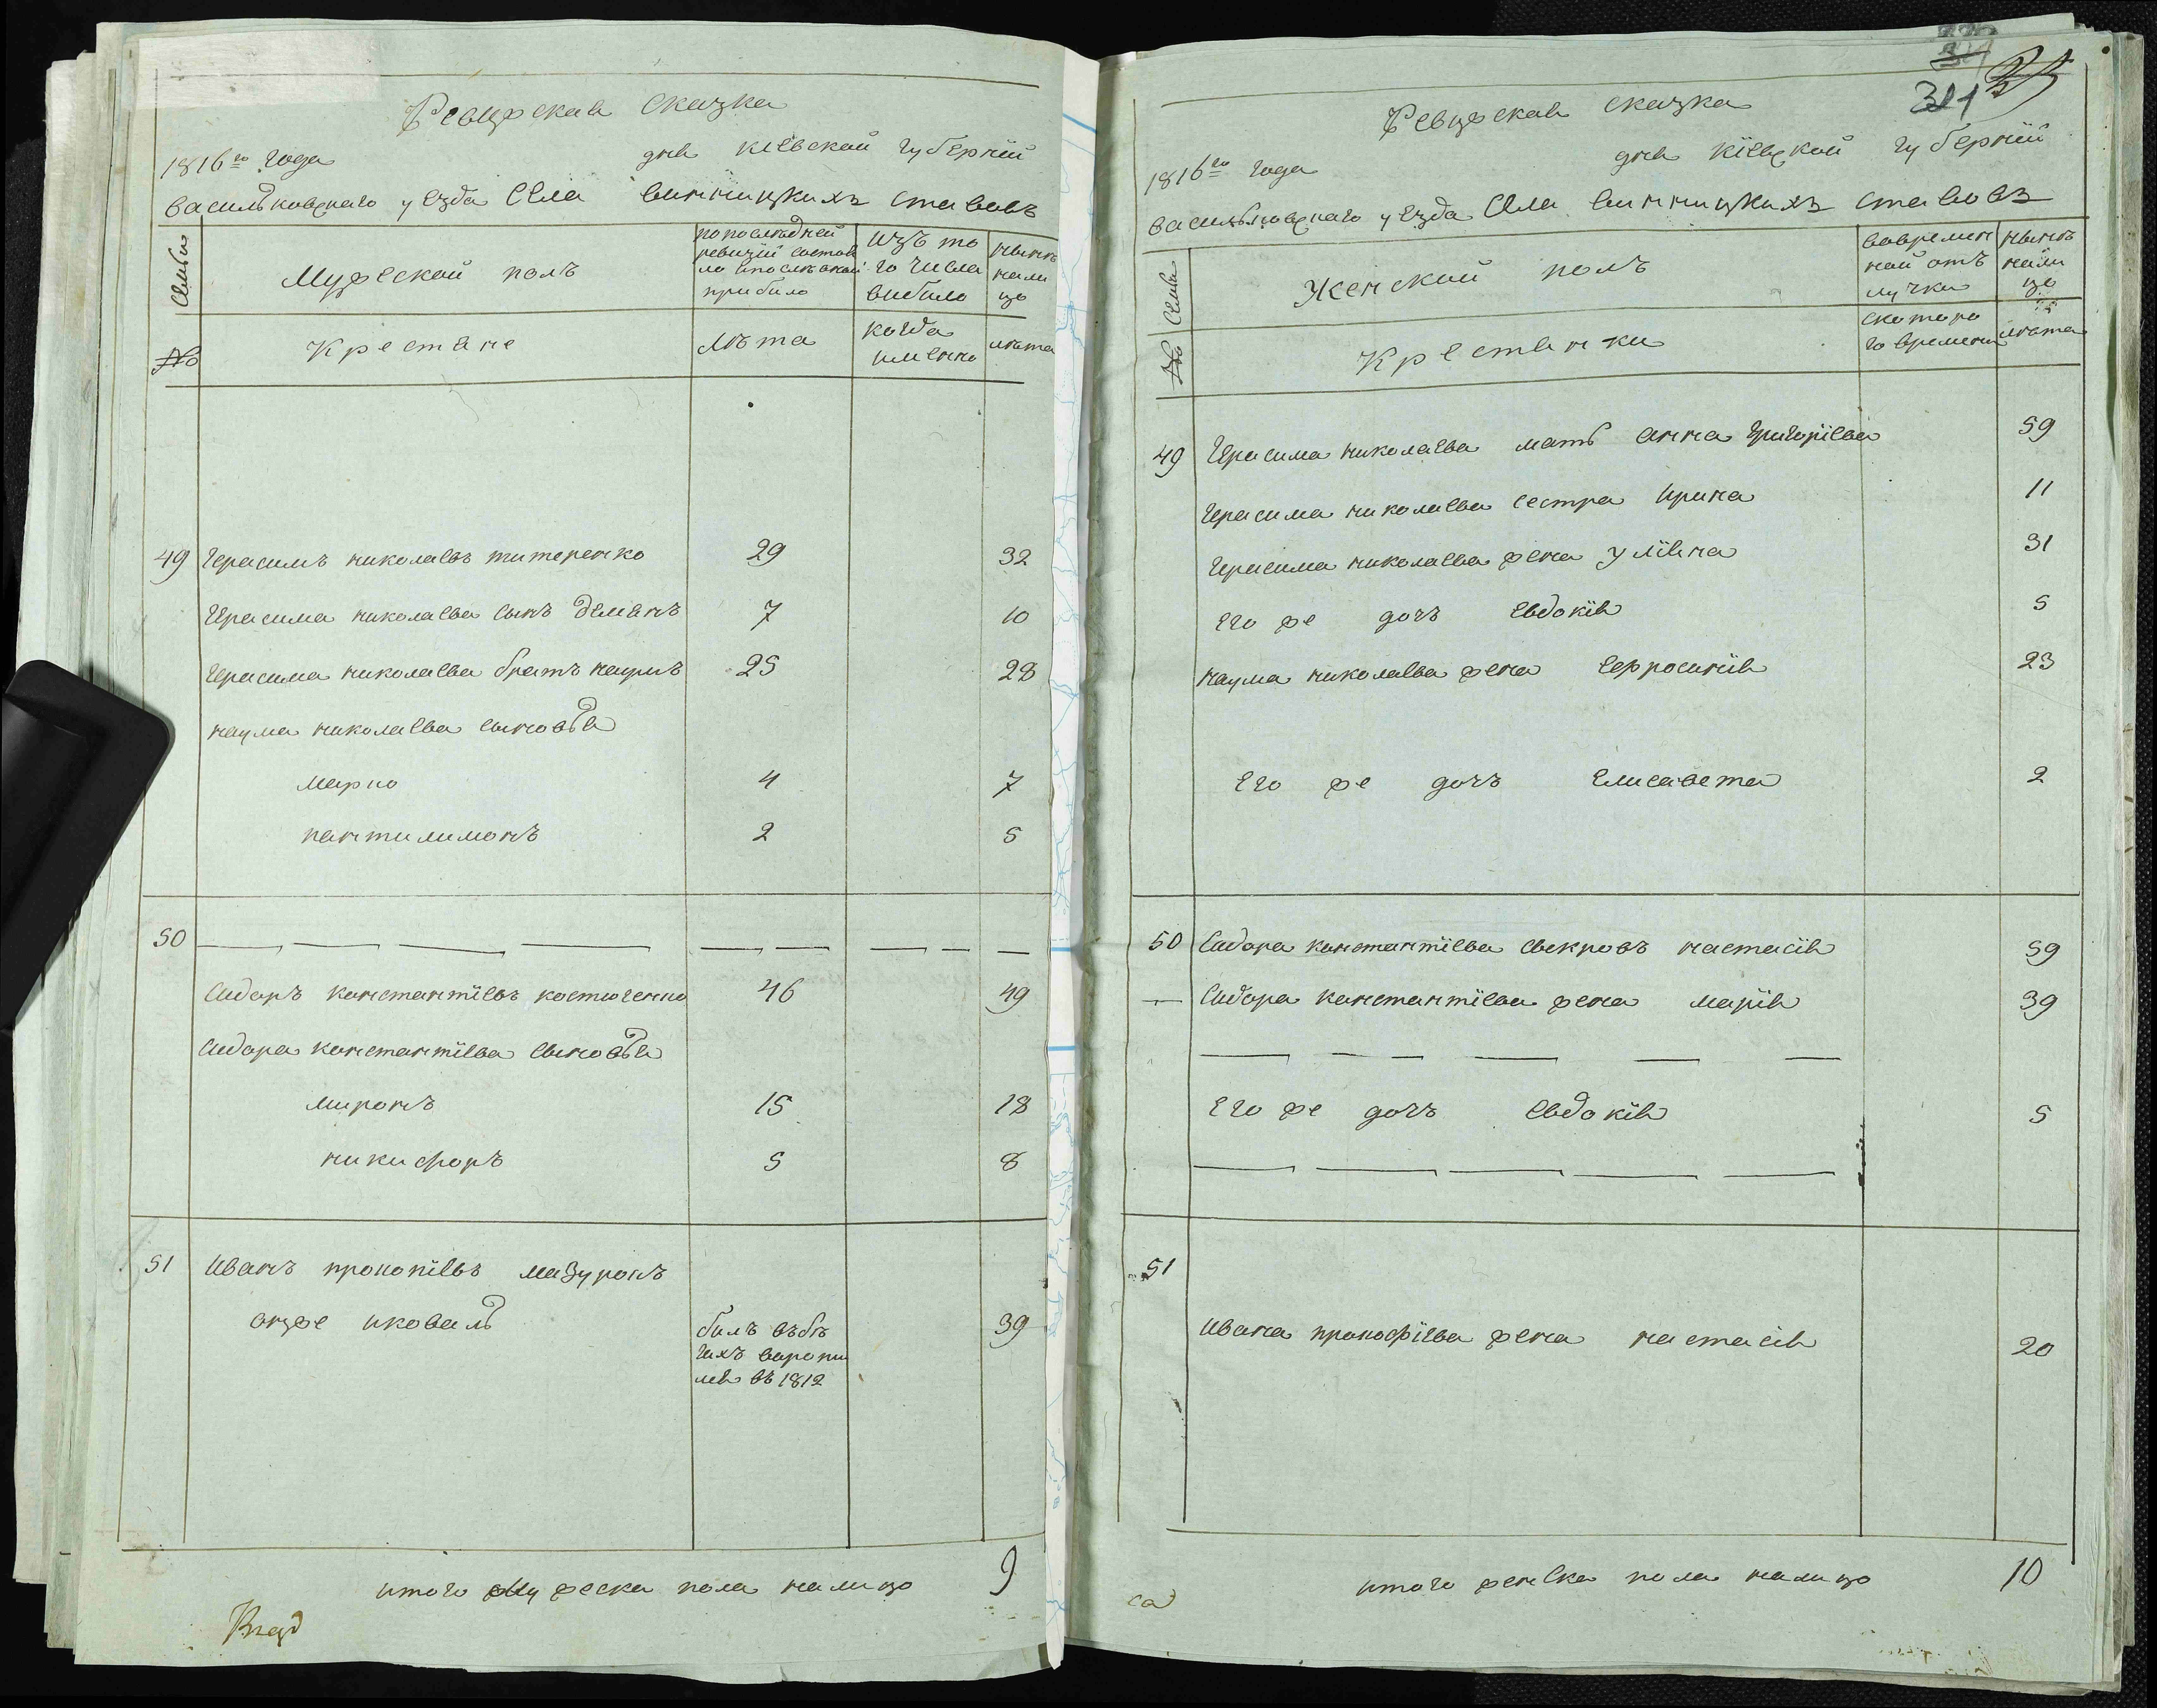 Ревизская сказка
1816го года дня Кіевской губерніи
Васильковскаго уезда Села Винницкихъ Ставовъ
Семьи
Мужеской полъ
по последней ревизіи состояло и после оной прибыло
Изъ того числа выбыло
ныне на лицо
№
Крестяне
Лѣта
когда именно
лѣта
49 Герасимъ николаевъ титеренко 29 32
Герасима николаева сынъ демянъ 7 10
Герасима николаева братъ наумъ 25 28
наума николаева сыновья
марко 4 7
пантилимонъ 2 5
50
Сидоръ константіевъ костюченко 46 49
Сидора константіева сыновья
миронъ 15 18
никифоръ 5 8
51 Иванъ прокопіевъ мазурокъ
онже иковаль 39
былъ въ бегахъ
въ 1812
итого мужеска пола налицо 9
Ревизская сказка
311
25
1816го года дня Кіевской губерніи
Васильковскаго уезда Села Винницкихъ Ставовъ
Семьи
Женской полъ
во временной отлучки
ныне на лицо
№
Крестянки
с котораго времени
лѣта
49 Герасима николаева мать анна григоріева 59
Герасима николаева сестра Ирина 11
Герасима николаева жена уліяна 31
Его же дочъ Евдокія 5
наума николаева жена Ефросинія 23
Его же дочъ Елисавета 2
50 Сидора константіева свекровъ настасія 59
Сидора константіева жена марія 39
Его же дочъ Евдокія 5
51
Ивана прокофіева жена настасія 20
итого женска пола налицо 10